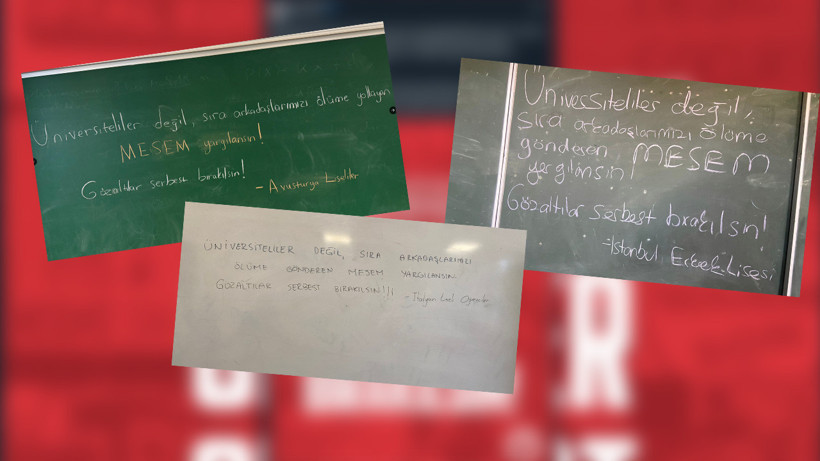 Üniversiteliler değil, sıra arkadaşlarımızı ölüme yollayan
MESEM yargılansın!
Gözaltılar serbest bırakılsın!
- Avusturya Liseliler
Üniversiteliler değil,
sıra arkadaşlarımızı ölüme
gönderen MESEM
yargılansın!
Gözaltılar serbest bırakılsın!
-İstanbul Erkek Lisesi
ÜNİVERSİTELİLER DEĞİL, SIRA ARKADAŞLARIMIZI
ÖLÜME GÖNDEREN MESEM YARGILANSIN
GÖZALTILAR SERBEST BIRAKILSIN!!!